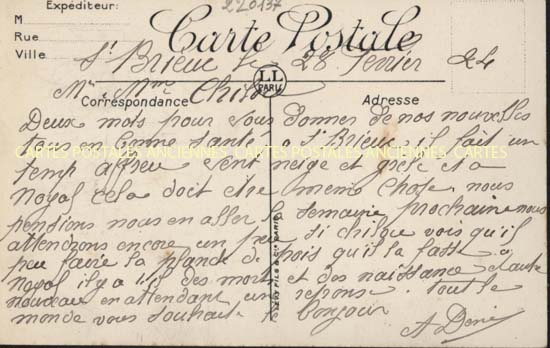 Expéditeur:
220137
M
Rue
Ville
Carte Postale
St Brieuc le 28 Fevrier 24
LL
PARIS
Mr Mme
Correspondance
Adresse
Deux mots pour vous donner de nos nouvelles
en bonne santé a St Brieuc il fait un
CARTES POSTALES ANCIENNES CARTES POSTALES ANCIENNES CARTES
temp affreu vent neige et grele et a
Noyal cela doit etre meme chose nous
pensions nous en aller la semaine prochaine nous
attendrons encore un peu si chique vous qu'il
peu faire la viande de qu'il la fasse a
Noyal il y a t'il des mort et des naissance d'autre
nouveau en attendant un reponse tout le
monde vous souhaite le bonjour
A Denis